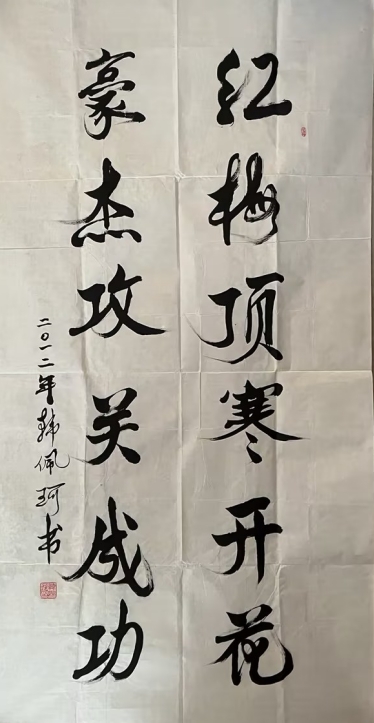 红梅顶寒开花
豪杰攻关成功
二〇一二年韩佩珂书